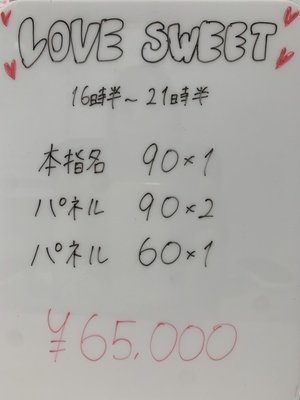 LOVE SWEET
16時半～21時半
本指名 90×1
パネル 90×2
パネル 60×1
¥65,000